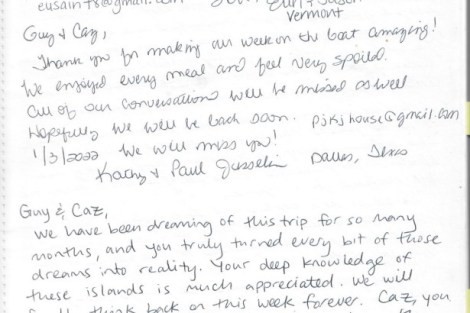 eusaints@gmail.com
Vermont
Guy & Caz,
Thank you for making our week on the boat amazing!
We enjoyed every meal and feel very spoiled.
All of our conversations will be missed as well
Hopefully we will be back soon. pjkjhouse@gmail.com
1/3/2022 We will miss you!
Kathy & Paul Dallas, Texas
Guy & Caz,
We have been dreaming of this trip for so many
months, and you truly turned every bit of those
dreams into reality. Your deep knowledge of
these islands is much appreciated. We will
think back on this week forever. Caz, you